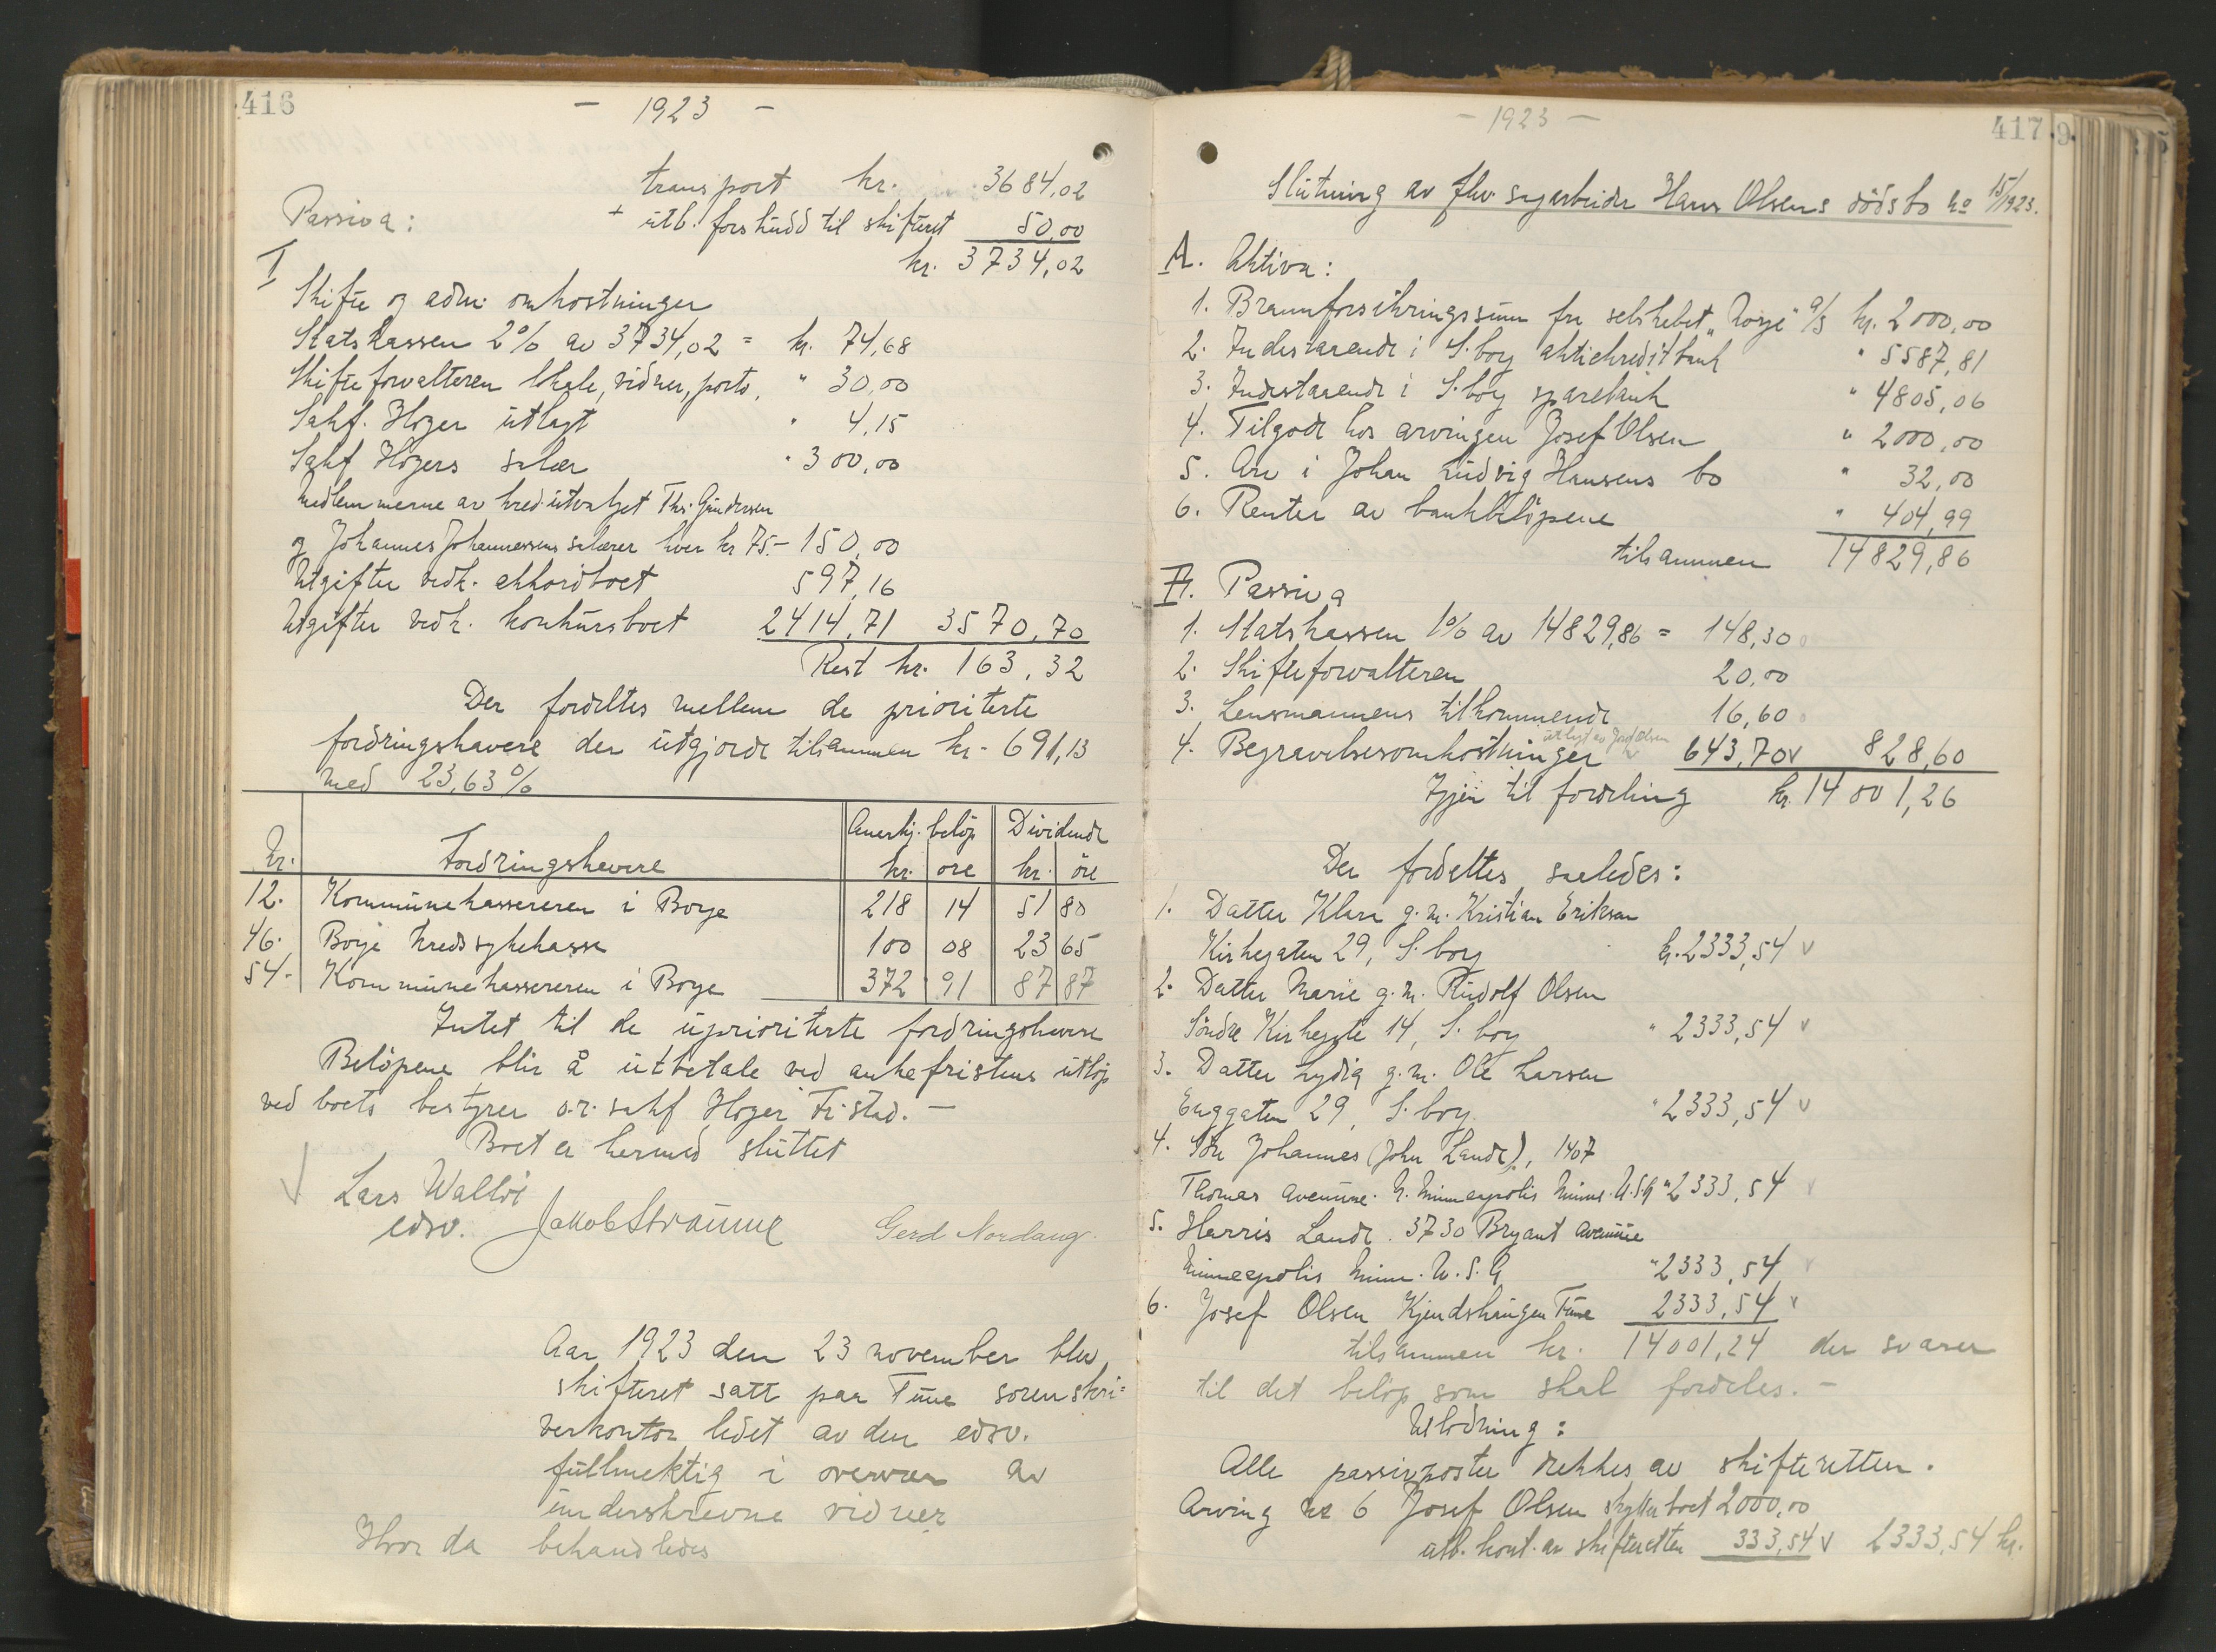 416
- 1923 -
transport kr. 3684,02
Passiva:
+ utb. forskudd til skifteret 50,00
kr. 3734,02
I
Skifte og adm. omkostninger
Statskassen 2% av 3734,02 = kr. 74,68
Skifteforvalteren lokale, vidner, porto, " 30,00
Sakf. Høyer utlagt " 4,15
Sakf Høyers salær " 300,00
Medlemmerne av kred.utvalget Thv. Gundersen
og Johannes Johannessens salærer hver kr 75.- 150,00
Utgifter vedk. akkordboet 597,16
Utgifter vedk. konkursboet 2414,71 3570,70
Rest kr. 163,32
Der fordeltes mellem de prioriterte
fordringshavere der utgjorde tilsammen kr. 691,13
med 23,63%
Nr. Fordringshavere Anerkj. beløp Dividende
kr. øre kr. øre
12. Kommunekassereren i Borge 218 14 51 80
46. Borge kredssykekasse 100 08 23 65
54. Kommunekassereren i Borge 372 91 87 87
Intet til de uprioriterte fordringshavere
Beløpene blir å utbetale ved ankefristens utløp
ved boets bestyrer o.r. sakf Høyer Fr.stad. -
Boet er hermed sluttet
Lars Walløe
edsv. Jakob Straume Gerd Nordaug.
Aar 1923 den 23 november blev
skifteret satt paa Tune sorenskri=
verkontor ledet av den edsv.
fullmektig i overvær av
underskrevne vidner
Hvor da behandledes
- 1923 -
417
Slutning av fhv. sagarbeider Hans Olsens dødsbo no 15/1923.
A. Aktiva:
1. Brannforsikringssum fra selskabet "Norge" A/S kr. 2000,00
2. Indestaaende i S.borg aktiekreditbank " 5587,81
3. Indestaaende i S.borg sparebank " 4805,06
4. Tilgode hos arvingen Josef Olsen " 2000,00
5. Arv i Johan Ludvig Hansens bo " 32,00
6. Renter av bankbeløpene " 404,99
tilsammen 14829,86
Passiva
1. Statskassen 1% av 14829,86 = 148,30
2. Skifteforvalteren 20,00
3. Lensmannens tilkommende 16,60
utlagt av Josef Olsen
4. Begravelsesomkostninger 643,70 v 828,60
Igjen til fordeling kr. 14001,26
Der fordeltes saaledes:
1. Datter Klara g.m. Kristian Eriksen
Kirkegaten 29, S.borg kr. 2333,54 v
2. Datter Marie g.m. Rudolf Olsen
Søndre Kirkegte 14, S.borg " 2333,54 v
3. Datter Lydia g.m. Ole Larsen
Enggaten 29, S.borg " 2333,54 v
4. Søn Johannes (John Lande), 1407
Thomas avenue. N. Minneapolis Minn. U.S.A " 2333,54 v
5. Harris Lande. 3730 Bryant avenue
Minneapolis Minn. U.S.A " 2333,54 v
6. Josef Olsen Kjendshaugen Tune 2333,54 v
tilsammen kr. 14001,24 der svarer
til det beløp som skal fordeles. -
Utlodning:
Alle passivposter dekkes av skifteretten.
Arving no 6 Josef Olsen skylder boet 2000,00
utb. kont. av skifteretten 333,54 v 2333,54 kr.